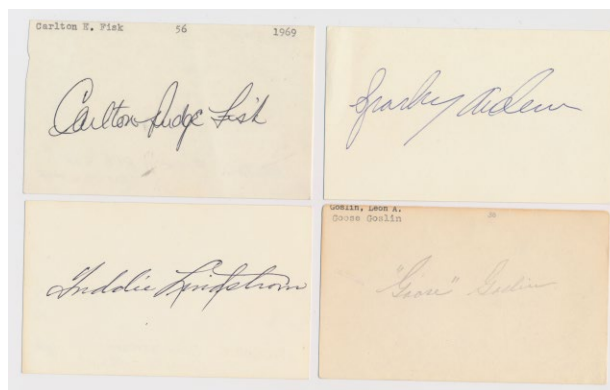 Carlton E. Fisk 56 1969
Carlton Pudge Fisk
Sparky Anderson
"Freddie Lindstrom
Goslin, Leon A.
Goose Goslin
"Goose" Goslin